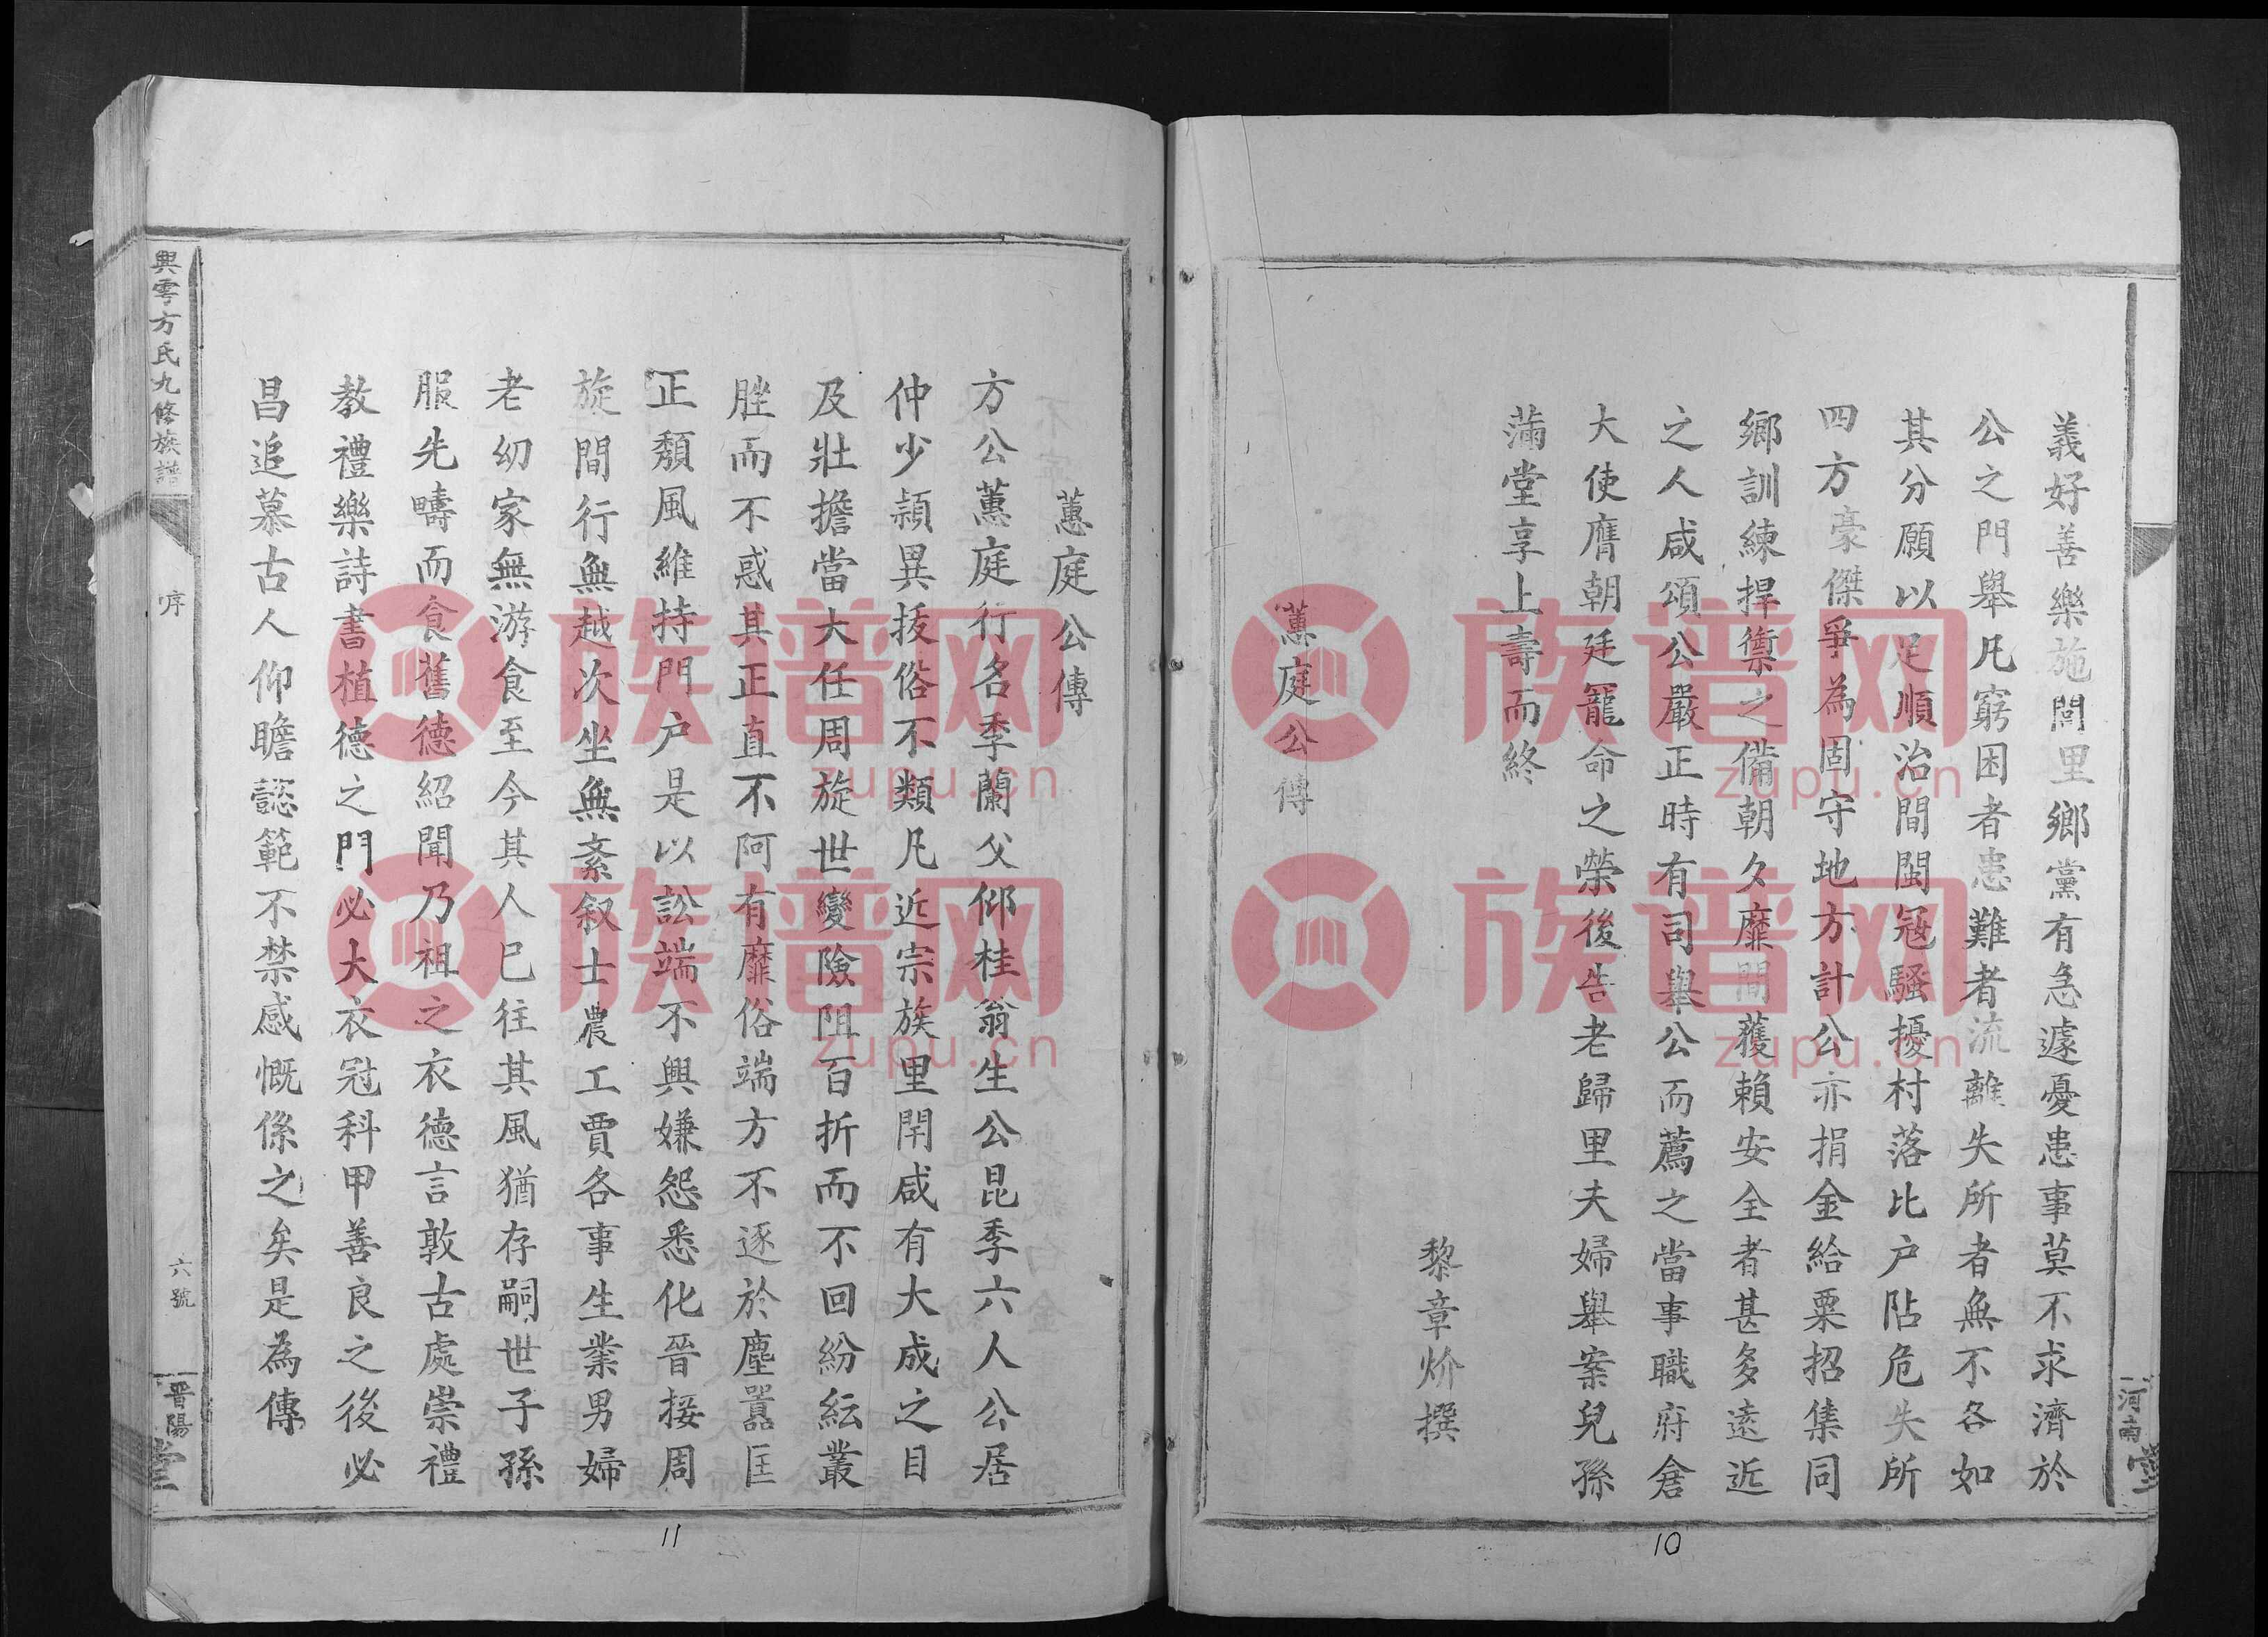 義好善樂施閭里鄉黨有急遽憂患事莫不求濟於
公之門舉凡窮困者患難者流離失所者無不各如
其分願以足順治間閩冦騷擾村落比户阽危失所
四方豪傑爭為固守地方計公亦捐金給粟招集同
鄉訓練捍禦之備朝夕靡間獲賴安全者甚多遠近
之人咸頌公嚴正時有司舉公而薦之當事職府倉
大使膺朝廷寵命之榮後告老歸里夫婦舉案兒孫
滿堂享上壽而終
黎章炌撰
蕙庭公傳
河南堂
10
蕙庭公傳
方公蕙庭行名季蘭父仰桂翁生公昆季六人公居
仲少頴異拔俗不類凡近宗族里閈咸有大成之目
及壯擔當大任周旋世變險阻百折而不回紛紜叢
脞而不惑其正直不阿有靡俗端方不逐於塵囂匡
正頽風維持門户是以訟端不興嫌怨悉化晉接周
旋間行無越次坐無紊叙士農工賈各事生業男婦
老幼家無游食至今其人已往其風猶存嗣世子孫
服先疇而食舊德紹聞乃祖之衣德言敦古處崇禮
教禮樂詩書植德之門必大衣冠科甲善良之後必
昌追慕古人仰瞻懿範不禁感慨係之矣是為傳
興寧方氏九修族譜
序
六號
晋陽堂
11
族谱网
zupu.cn
族谱网
zupu.cn
族谱网
zupu.cn
族谱网
zupu.cn